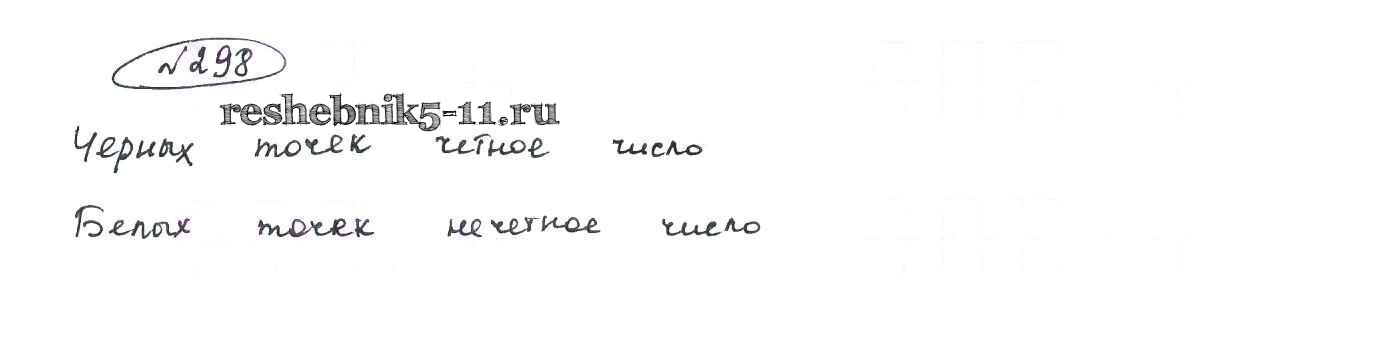 №298
reshebnik5-11.ru
Черных точек четное число
Белых точек нечетное число